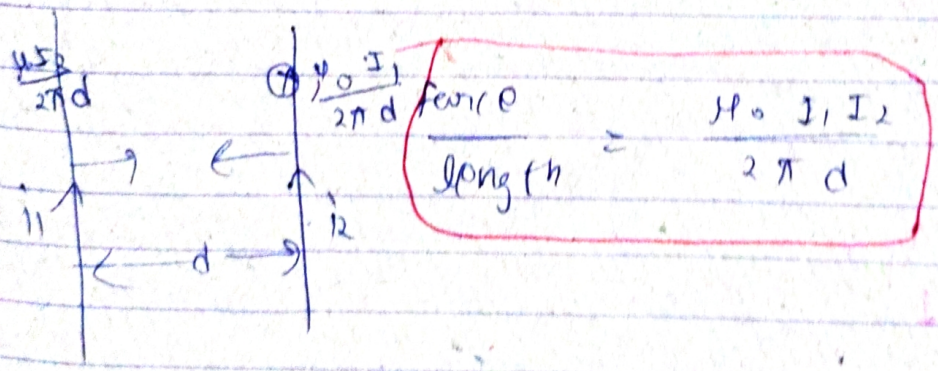 μI₂/2πd
⊗, μ₀I₁/2πd
force/length = μ₀ I₁ I₂/2πd
i1
i2
d